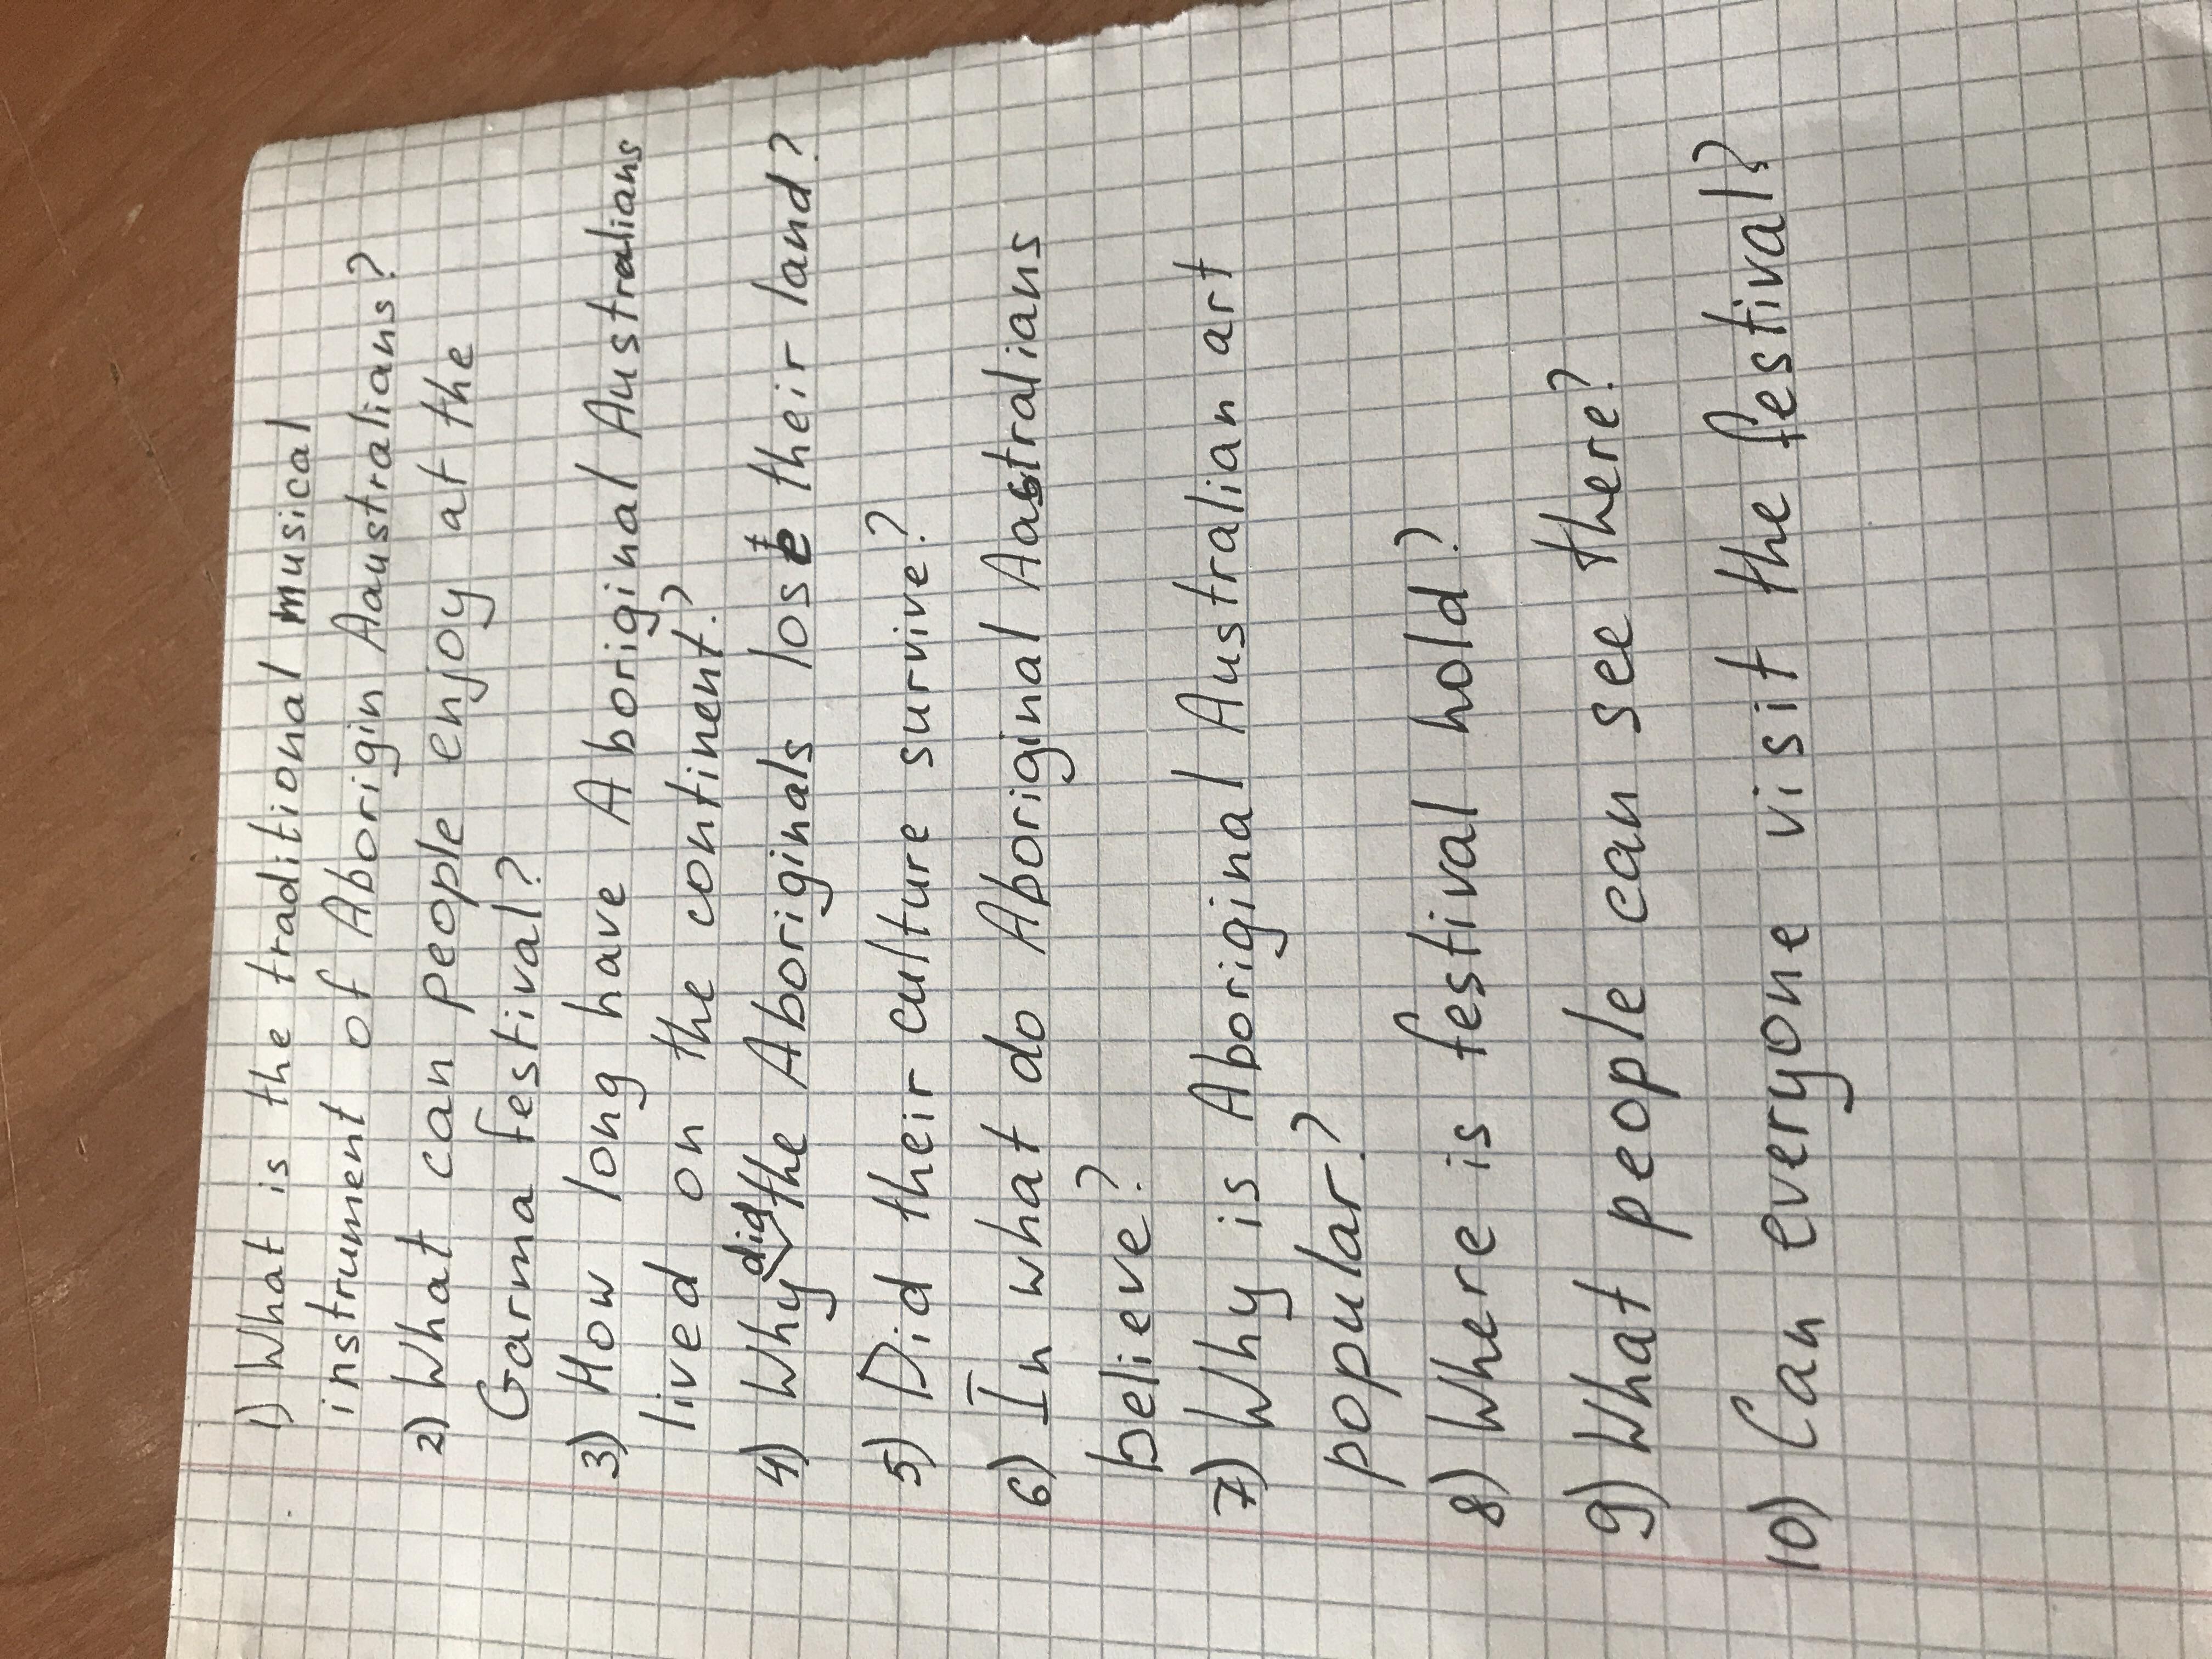 1) What is the traditional musical
instrument of Aborigin Aaustralians?
2) What can people enjoy at the
Garma festival?
3) How long have Aboriginal Australians
lived on the continent?
4) Why did the Aboriginals lost their land?
5) Did their culture survive?
6) In what do Aboriginal Aastralians
believe?
7) Why is Aboriginal Australian art
popular?
8) Where is festival hold?
9) What people can see there?
10) Can everyone visit the festival?